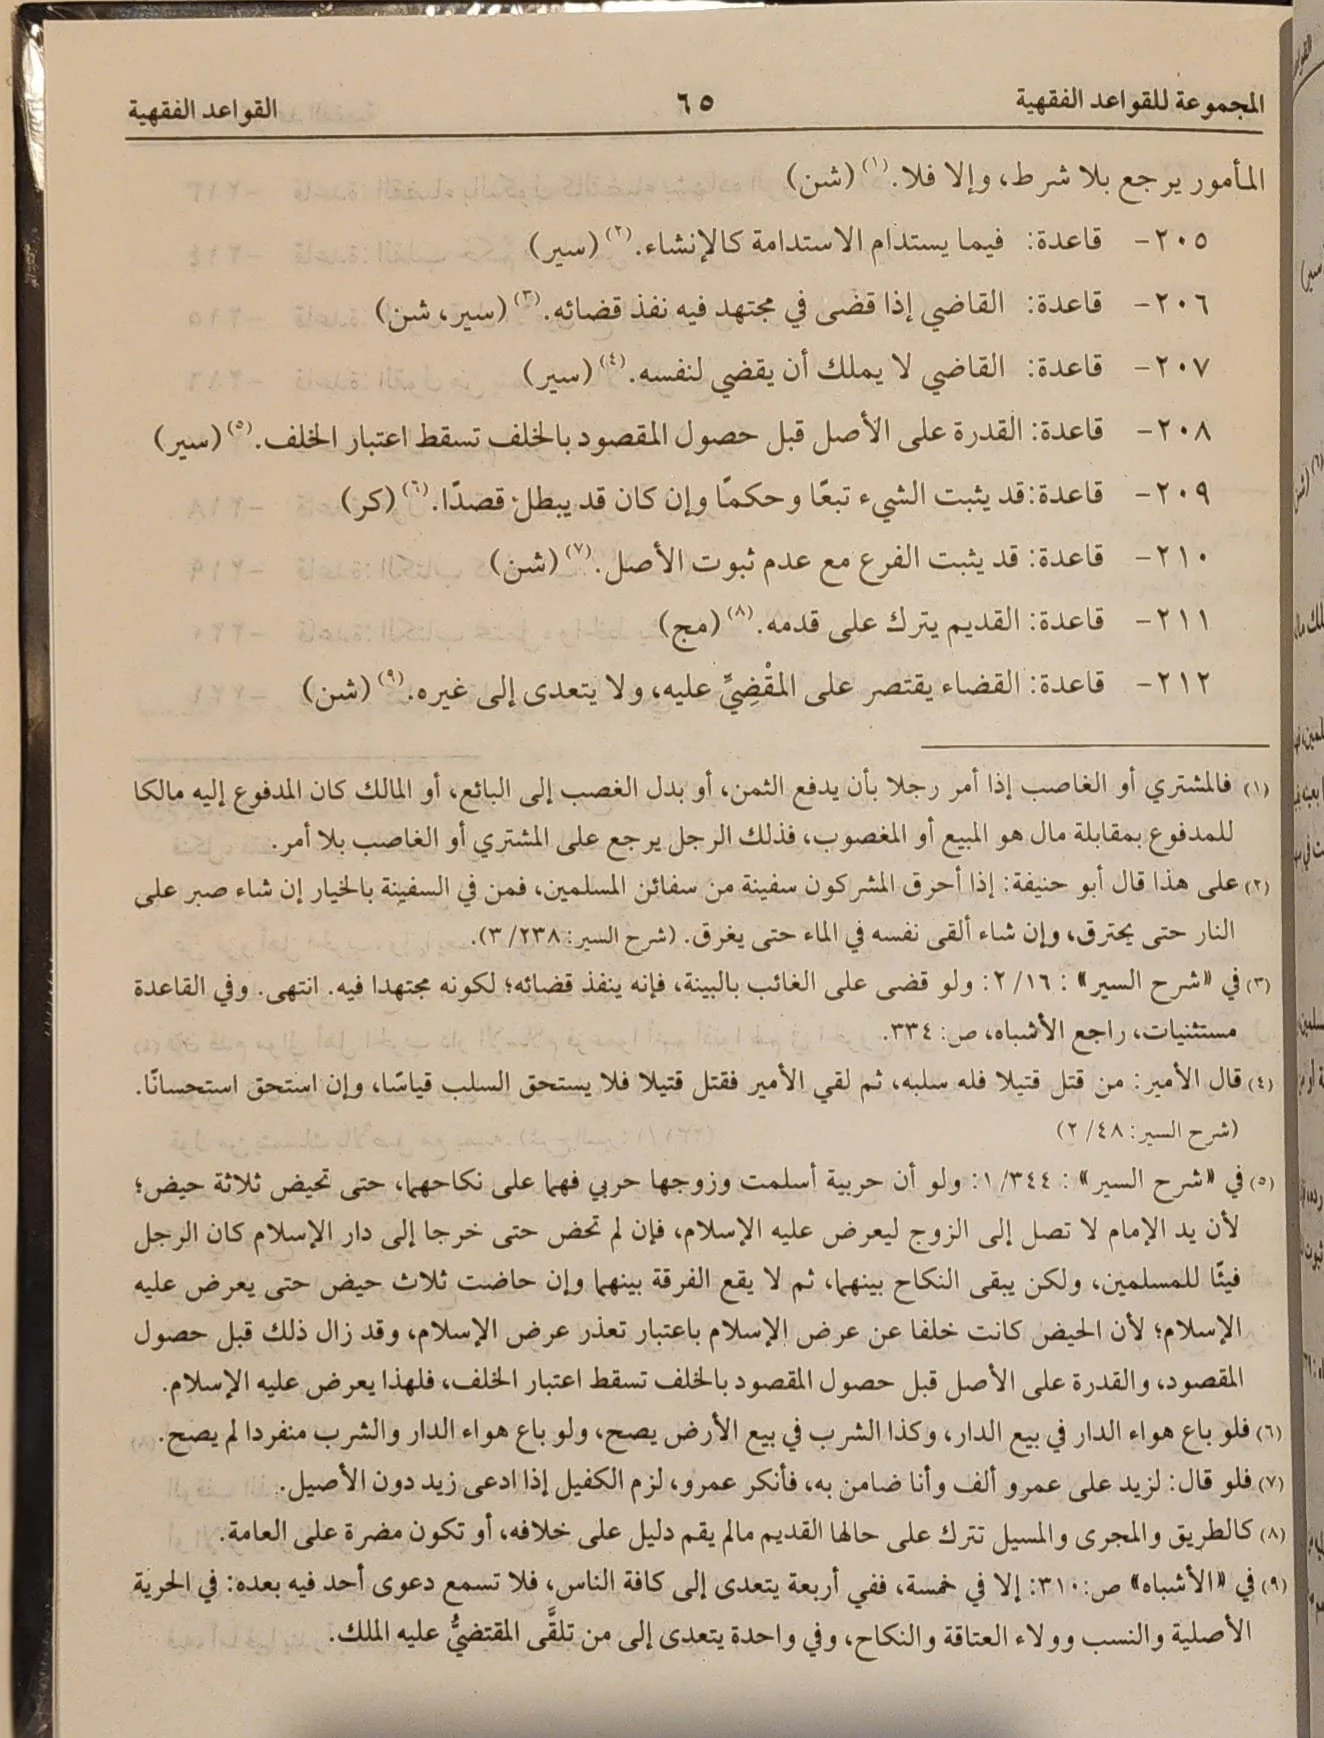 المجموعة للقواعد الفقهية ٦٥ القواعد الفقهية
المأمور يرجع بلا شرط، وإلا فلا.(١) (شن)
٢٠٥- قاعدة: فيما يستدام الاستدامة كالإنشاء.(٢) (سير)
٢٠٦- قاعدة: القاضي إذا قضى في مجتهد فيه نفذ قضائه.(٣) (سير، شن)
٢٠٧- قاعدة: القاضي لا يملك أن يقضي لنفسه.(٤) (سير)
٢٠٨- قاعدة: القدرة على الأصل قبل حصول المقصود بالخلف تسقط اعتبار الخلف.(٥) (سير)
٢٠٩- قاعدة: قد يثبت الشيء تبعًا وحكمًا وإن كان قد يبطل قصدًا.(٦) (كر)
٢١٠- قاعدة: قد يثبت الفرع مع عدم ثبوت الأصل.(٧) (شن)
٢١١- قاعدة: القديم يترك على قدمه.(٨) (مج)
٢١٢- قاعدة: القضاء يقتصر على المقْضِيِّ عليه، ولا يتعدى إلى غيره.(٩) (شن)
(١) فالمشتري أو الغاصب إذا أمر رجلا بأن يدفع الثمن، أو بدل الغصب إلى البائع، أو المالك كان المدفوع إليه مالكا
للمدفوع بمقابلة مال هو المبيع أو المغصوب، فذلك الرجل يرجع على المشتري أو الغاصب بلا أمر.
(٢) على هذا قال أبو حنيفة: إذا أحرق المشركون سفينة من سفائن المسلمين، فمن في السفينة بالخيار إن شاء صبر على
النار حتى يحترق، وإن شاء ألقى نفسه في الماء حتى يغرق. (شرح السير: ٢٣٨/ ٣).
(٣) في «شرح السير» : ١٦/ ٢: ولو قضى على الغائب بالبينة، فإنه ينفذ قضائه؛ لكونه مجتهدا فيه. انتهى. وفي القاعدة
مستثنيات، راجع الأشباه، ص: ٣٣٤.
(٤) قال الأمير: من قتل قتيلا فله سلبه، ثم لقي الأمير فقتل قتيلا فلا يستحق السلب قياسًا، وإن استحق استحسانًا.
(شرح السير: ٤٨/ ٢)
(٥) في «شرح السير» : ٣٤٤/ ١: ولو أن حربية أسلمت وزوجها حربي فهما على نكاحهما، حتى تحيض ثلاثة حيض؛
لأن يد الإمام لا تصل إلى الزوج ليعرض عليه الإسلام، فإن لم تحض حتى خرجا إلى دار الإسلام كان الرجل
فيئًا للمسلمين، ولكن يبقى النكاح بينهما، ثم لا يقع الفرقة بينهما وإن حاضت ثلاث حيض حتى يعرض عليه
الإسلام؛ لأن الحيض كانت خلفا عن عرض الإسلام باعتبار تعذر عرض الإسلام، وقد زال ذلك قبل حصول
المقصود، والقدرة على الأصل قبل حصول المقصود بالخلف تسقط اعتبار الخلف، فلهذا يعرض عليه الإسلام.
(٦) فلو باع هواء الدار في بيع الدار، وكذا الشرب في بيع الأرض يصح، ولو باع هواء الدار والشرب منفردا لم يصح.
(٧) فلو قال: لزيد على عمرو ألف وأنا ضامن به، فأنكر عمرو، لزم الكفيل إذا ادعى زيد دون الأصيل.
(٨) كالطريق والمجرى والمسيل تترك على حالها القديم مالم يقم دليل على خلافه، أو تكون مضرة على العامة.
(٩) في «الأشباه» ص: ٣١٠: إلا في خمسة، ففي أربعة يتعدى إلى كافة الناس، فلا تسمع دعوى أحد فيه بعده: في الحرية
الأصلية والنسب وولاء العتاقة والنكاح، وفي واحدة يتعدى إلى من تلقَّى المقتضيُّ عليه الملك.